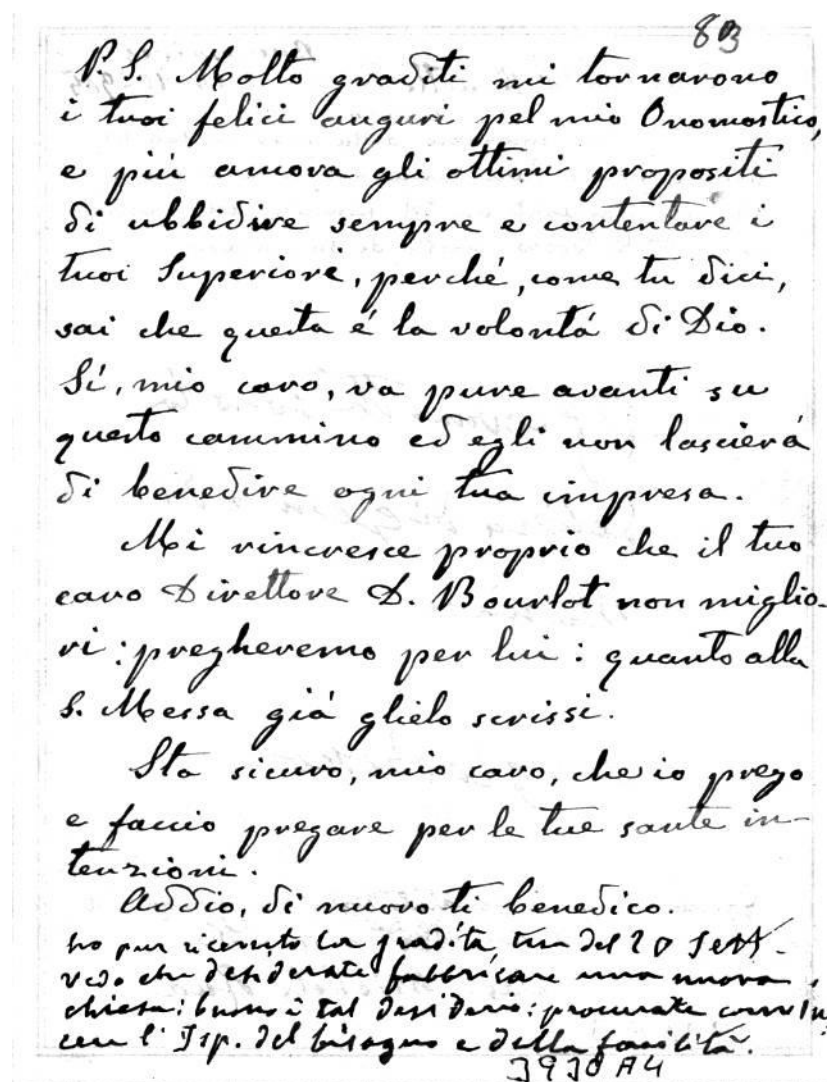 803
P. S. Molto graditi mi tornarono
i tuoi felici auguri pel mio Onomastico,
e più ancora gli ottimi propositi
di ubbidire sempre e contentare i
tuoi Superiori, perché, come tu dici,
sai che questa é la volontá di Dio.
Sí, mio caro, va pure avanti su
questo cammino ed egli non lascierá
di benedire ogni tua impresa.
Mi rincresce proprio che il tuo
caro Direttore D. Bourlot non miglio-
ri: pregheremo per lui: quanto alla
S. Messa giá glielo scrissi.
Sta sicuro, mio caro, che io prego
e faccio pregare per le tue sante in-
tenzioni.
Addio, di nuovo ti benedico.
ho pur ricevuto la gradita tua del 20 Sett.
vedo che desiderate fabbricare una nuova
chiesa: buono è tal desiderio: procurate
l'Isp. del bisogno e della facilità.
3930 A4